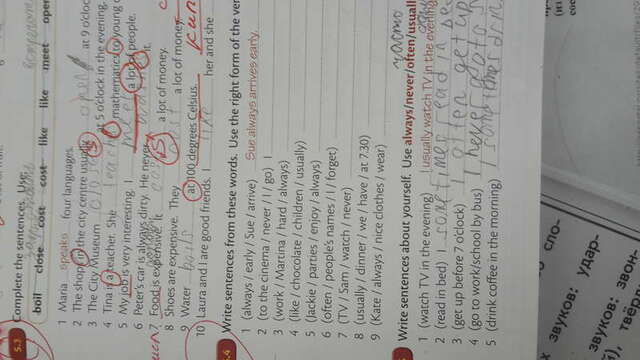 5.3 Complete the sentences. Use:
boil close cost cost like like meet open
1 Maria speaks four languages.
2 The shops in the city centre usually open at 9 o'cloc
3 The City Museum closes at 5 o'clock in the evening.
4 Tina is a teacher. She teach mathematics to young c
5 My job is very interesting. I meet a lot of people.
6 Peter's car is always dirty. He never wash it.
7 Food is expensive. It cost S a lot of money.
8 Shoes are expensive. They cost a lot of money
9 Water boils at 100 degrees Celsius.
10 Laura and I are good friends. I like her and she
.4 Write sentences from these words. Use the right form of the ver
1 (always / early / Sue / arrive) Sue always arrives early.
2 (to the cinema / never / I / go) I
3 (work / Martina / hard / always)
4 (like / chocolate / children / usually)
5 (Jackie / parties / enjoy / always)
6 (often / people's names / I / forget)
7 (TV / Sam / watch / never)
8 (usually / dinner / we / have / at 7.30)
9 (Kate / always / nice clothes / wear)
часто
Write sentences about yourself. Use always/never/often/usuall
1 (watch TV in the evening) I usually watch TV in the evening
2 (read in bed) I sometimes read in bed
3 (get up before 7 o'clock) I often get up
4 (go to work/school by bus) I never go to s
5 (drink coffee in the morning) I sometimes drin
сло-
х звуков: удар-
звуков: звон-